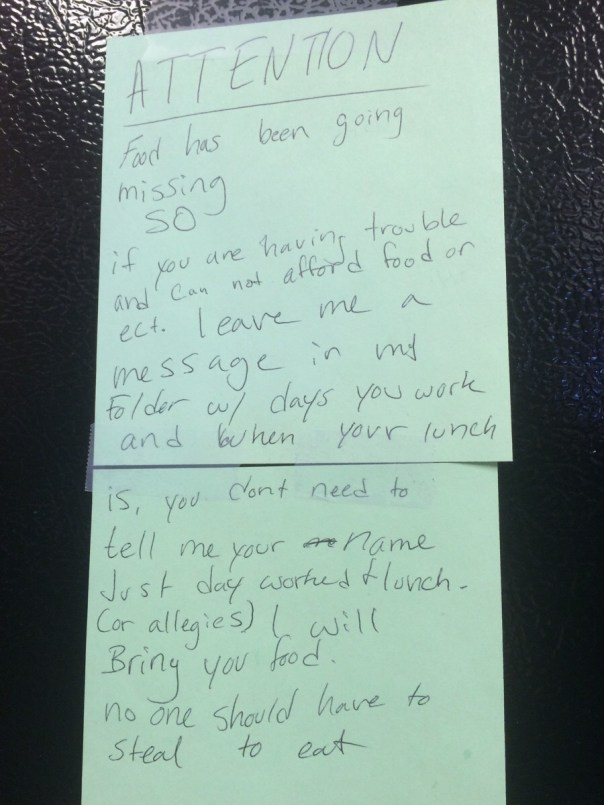 ATTENTION
Food has been going
missing
SO
if you are having trouble
and can not afford food or
ect. leave me a
message in my
Folder w/ days you work
and when your lunch
is, you dont need to
tell me your name
Just day worked + lunch.
(or allegies) I will
Bring you food.
no one should have to
steal to eat